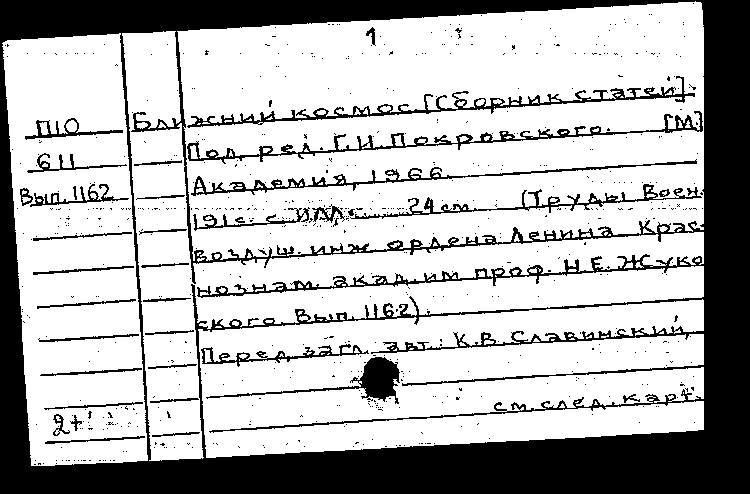 1
Ближний космос. [Сборник статей].
П10
Под ред. Г.И. Покровского. [М.]
611
Академия, 1966.
Вып. 1162
191 с. с илл. 24 см. (Труды Воен.
воздуш. инж ордена Ленина Крас-
нознам. акад. им проф. Н.Е. Жуко
ского. Вып. 1162).
Перед загл. авт.: К.В. Славинский,
см. след. карт.
2+